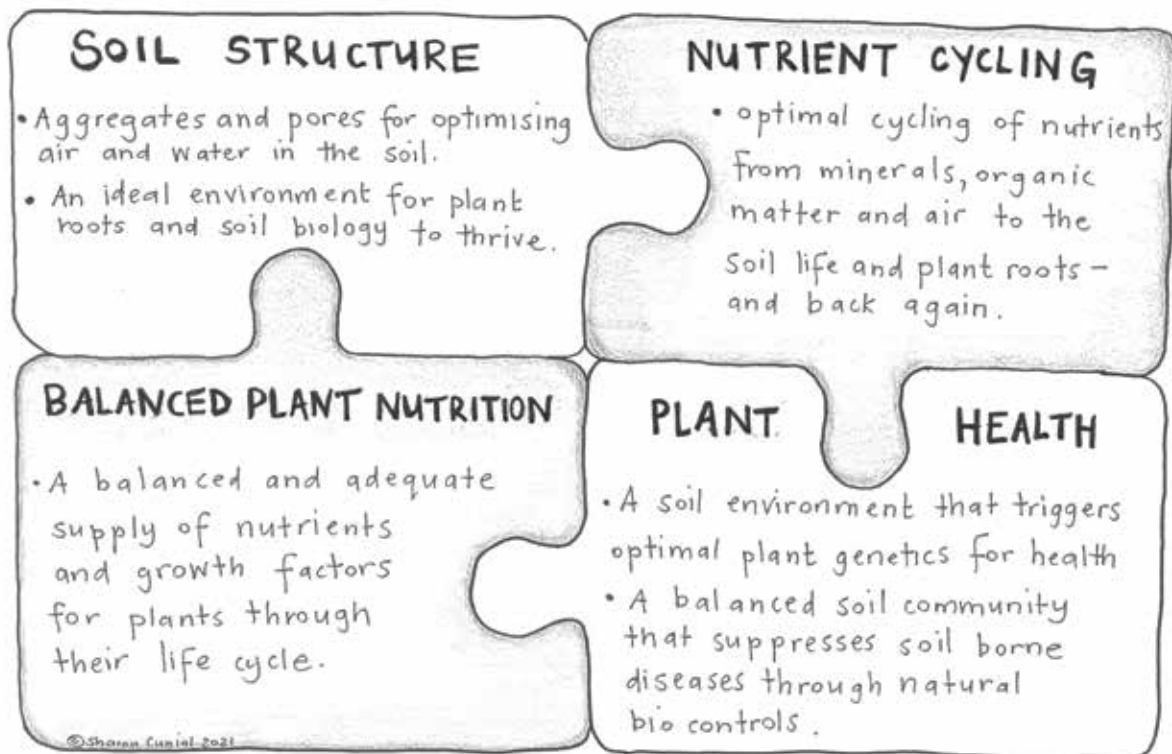 SOIL STRUCTURE
• Aggregates and pores for optimising
air and water in the soil.
• An ideal environment for plant
roots and soil biology to thrive.
NUTRIENT CYCLING
• optimal cycling of nutrients
from minerals, organic
matter and air to the
soil life and plant roots –
and back again.
BALANCED PLANT NUTRITION
• A balanced and adequate
supply of nutrients
and growth factors
for plants through
their life cycle.
PLANT HEALTH
• A soil environment that triggers
optimal plant genetics for health
• A balanced soil community
that suppresses soil borne
diseases through natural
bio controls.
©Sharon Cunial 2021